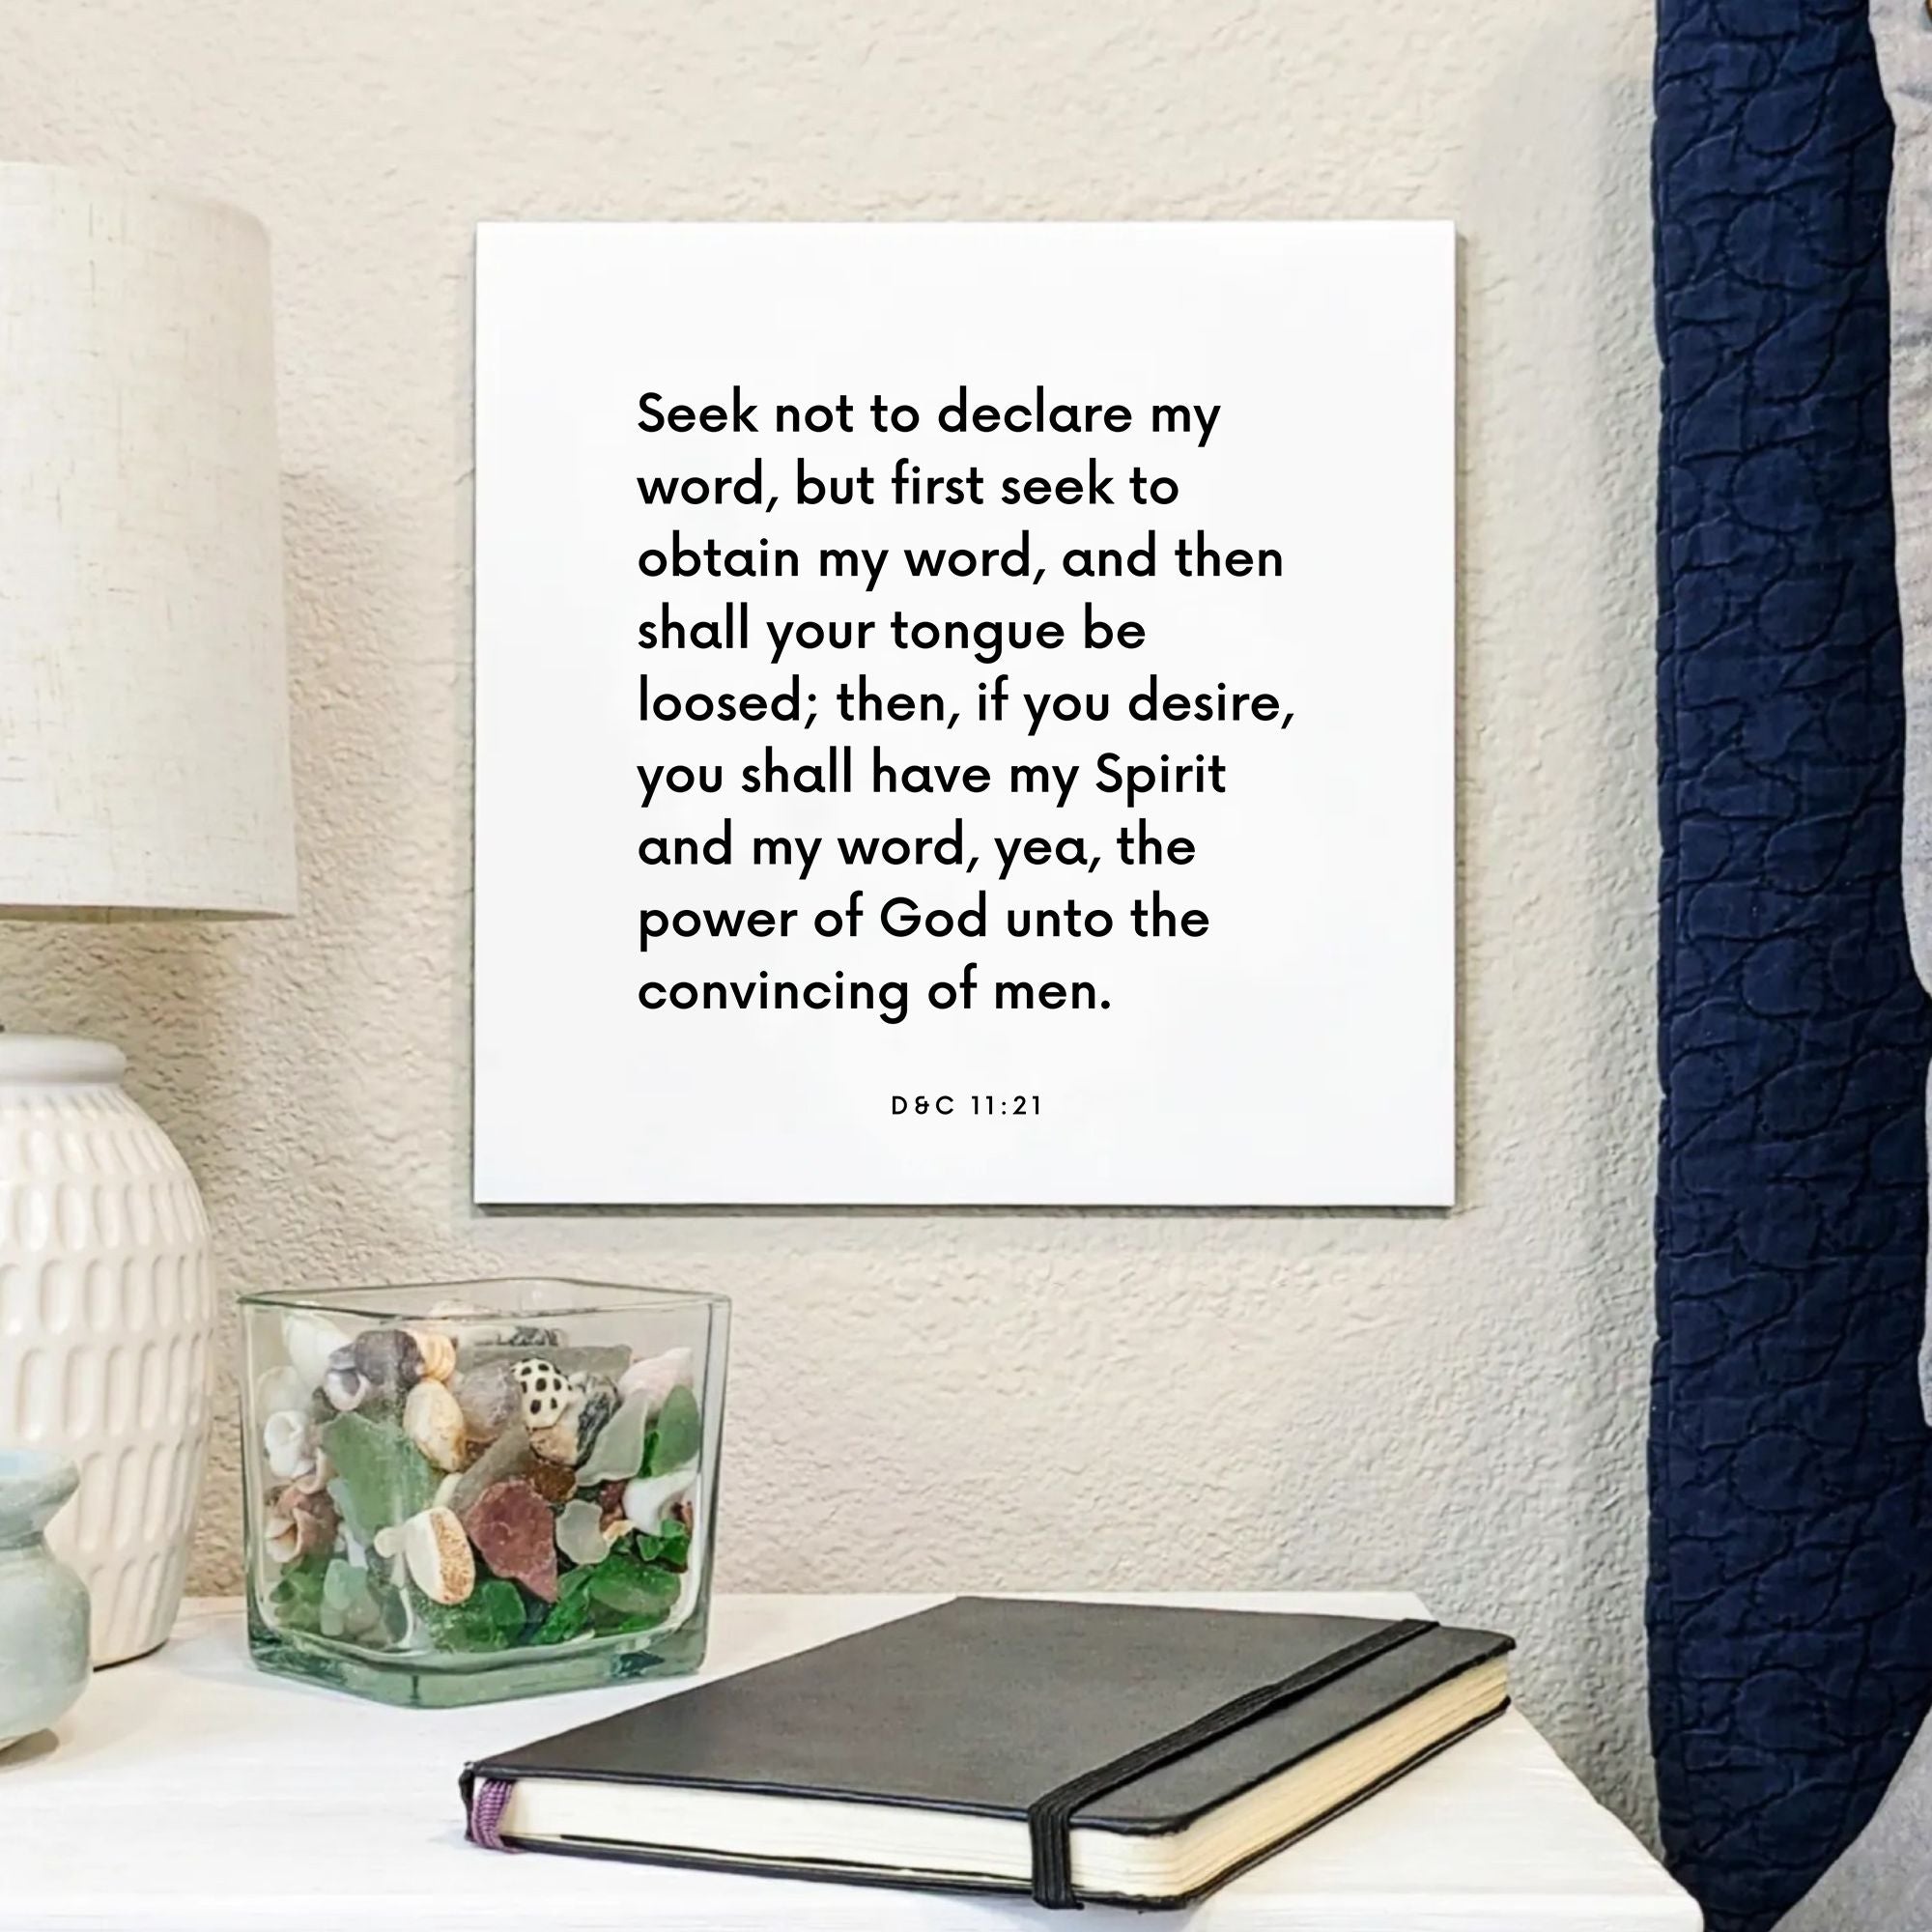 Seek not to declare my
word, but first seek to
obtain my word, and then
shall your tongue be
loosed; then, if you desire,
you shall have my Spirit
and my word, yea, the
power of God unto the
convincing of men.
D&C 11:21